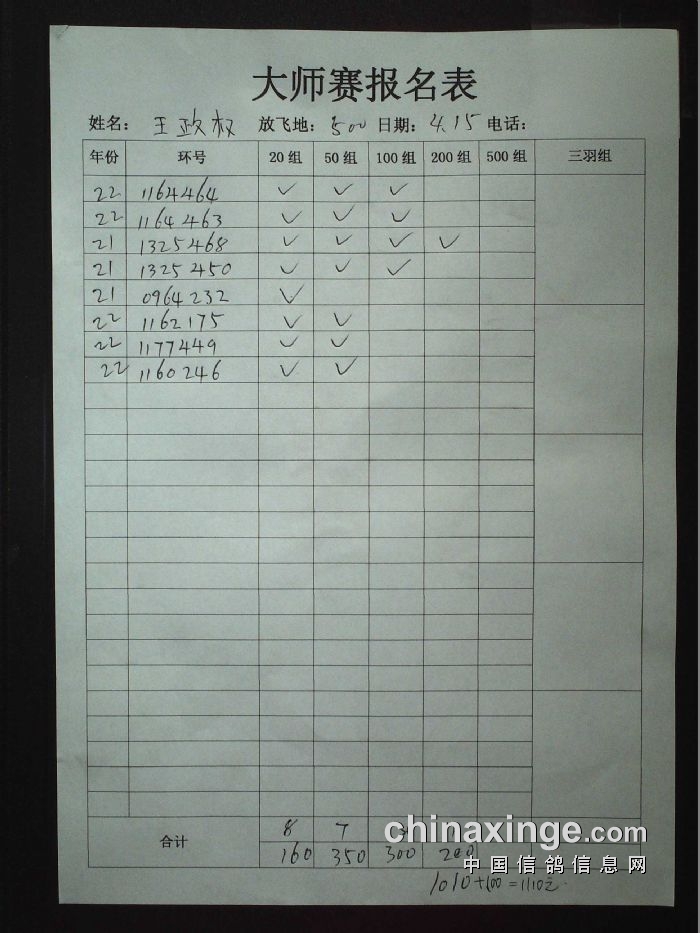 大师赛报名表
姓名: 王政权 放飞地: 500 日期: 4.15 电话:
年份 环号 20组 50组 100组 200组 500组 三羽组
22 1164464 ✓ ✓ ✓
22 1164463 ✓ ✓ ✓
21 1325468 ✓ ✓ ✓ ✓
21 1325450 ✓ ✓ ✓
21 0964232 ✓
22 1162175 ✓ ✓
22 1177449 ✓ ✓
22 1160246 ✓ ✓
合计 8 7 3
160 350 300 200
chinaxinge.com
中国信鸽信息网
1010+100=1110元